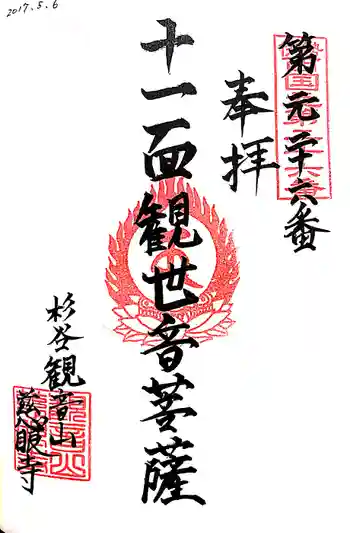 2017.5.6
第元二十六番
奉拝
十一面観世音菩薩
杉谷観音山
慈眼寺